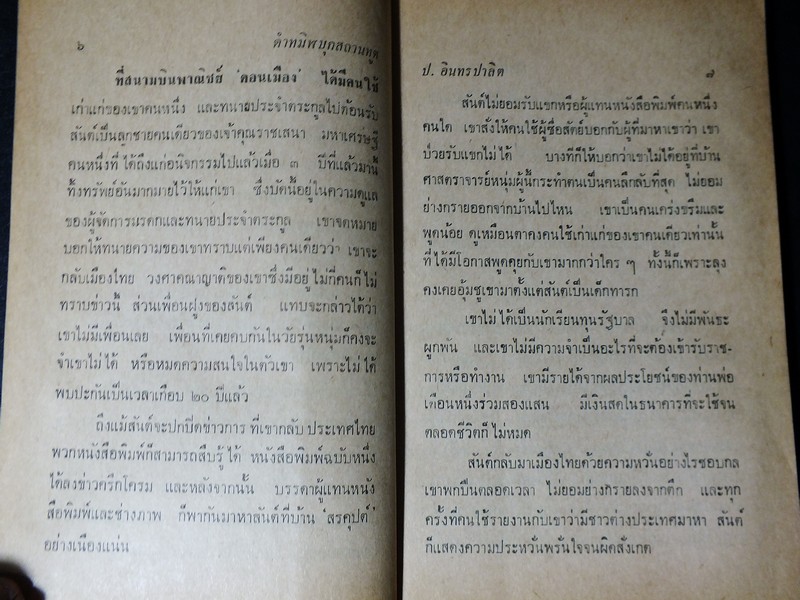 ๖
ดำทมิฬบุกสถานทูต
ที่สนามบินพาณิชย์ ‘ดอนเมือง’ ได้มีคนใช้
เก่าแก่ของเขาคนหนึ่ง และทนายประจำตระกูลไปต้อนรับ
สันต์เป็นลูกชายคนเดียวของเจ้าคุณราชเสนา มหาเศรษฐี
คนหนึ่งที่ได้ถึงแก่อนิจกรรมไปแล้วเมื่อ ๓ ปีที่แล้วมานี้
ทิ้งทรัพย์อันมากมายไว้ให้แก่เขา ซึ่งบัดนี้อยู่ในความดูแล
ของผู้จัดการมรดกและทนายประจำตระกูล เขาจดหมาย
บอกให้ทนายความของเขาทราบแต่เพียงคนเดียวว่า เขาจะ
กลับเมืองไทย วงศาคณาญาติของเขาซึ่งมีอยู่ไม่กี่คนก็ไม่
ทราบข่าวนี้ ส่วนเพื่อนฝูงของสันต์ แทบจะกล่าวได้ว่า
เขาไม่มีเพื่อนเลย เพื่อนที่เคยคบกันในวัยรุ่นหนุ่มก็คงจะ
จำเขาไม่ได้ หรือหมดความสนใจในตัวเขา เพราะไม่ได้
พบปะกันเป็นเวลาเกือบ ๒๐ ปีแล้ว
ถึงแม้สันต์จะปกปิดข่าวการ ที่เขากลับประเทศไทย
พวกหนังสือพิมพ์ก็สามารถสืบรู้ได้ หนังสือพิมพ์ฉบับหนึ่ง
ได้ลงข่าวครึกโครม และหลังจากนั้น บรรดาผู้แทนหนัง
สือพิมพ์และช่างภาพ ก็พากันมาหาสันต์ที่บ้าน ‘สรคุปต์’
อย่างเนืองแน่น
ป. อินทรปาลิต
๗
สันต์ไม่ยอมรับแขกหรือผู้แทนหนังสือพิมพ์คนหนึ่ง
คนใด เขาสั่งให้คนใช้ผู้ซื่อสัตย์บอกกับผู้ที่มาหาเขาว่า เขา
ป่วยรับแขกไม่ได้ บางทีก็ให้บอกว่าเขาไม่ได้อยู่ที่บ้าน
ศาสตราจารย์หนุ่มผู้นี้กระทำตนเป็นคนลึกลับที่สุด ไม่ยอม
ย่างกรายออกจากบ้านไปไหน เขาเป็นคนเคร่งขรึมและ
พูดน้อย ดูเหมือนตาคงคนใช้เก่าแก่ของเขาคนเดียวเท่านั้น
ที่ได้มีโอกาสพูดคุยกับเขามากกว่าใคร ๆ ทั้งนี้ก็เพราะลุง
คงเคยอุ้มชูเขามาตั้งแต่สันต์เป็นเด็กทารก
เขาไม่ได้เป็นนักเรียนทุนรัฐบาล จึงไม่มีพันธะ
ผูกพัน และเขาไม่มีความจำเป็นอะไรที่จะต้องเข้ารับราช-
การหรือทำงาน เขามีรายได้จากผลประโยชน์ของท่านพ่อ
เดือนหนึ่งร่วมสองแสน มีเงินสดในธนาคารที่จะใช้จน
ตลอดชีวิตก็ไม่หมด
สันต์กลับมาเมืองไทยด้วยความหวั่นอย่างไรชอบกล
เขาพกปืนตลอดเวลา ไม่ยอมย่างกรายลงจากตึก และทุก
ครั้งที่คนใช้รายงานกับเขาว่ามีชาวต่างประเทศมาหา สันต์
ก็แสดงความประหวั่นพรั่นใจจนผิดสังเกต